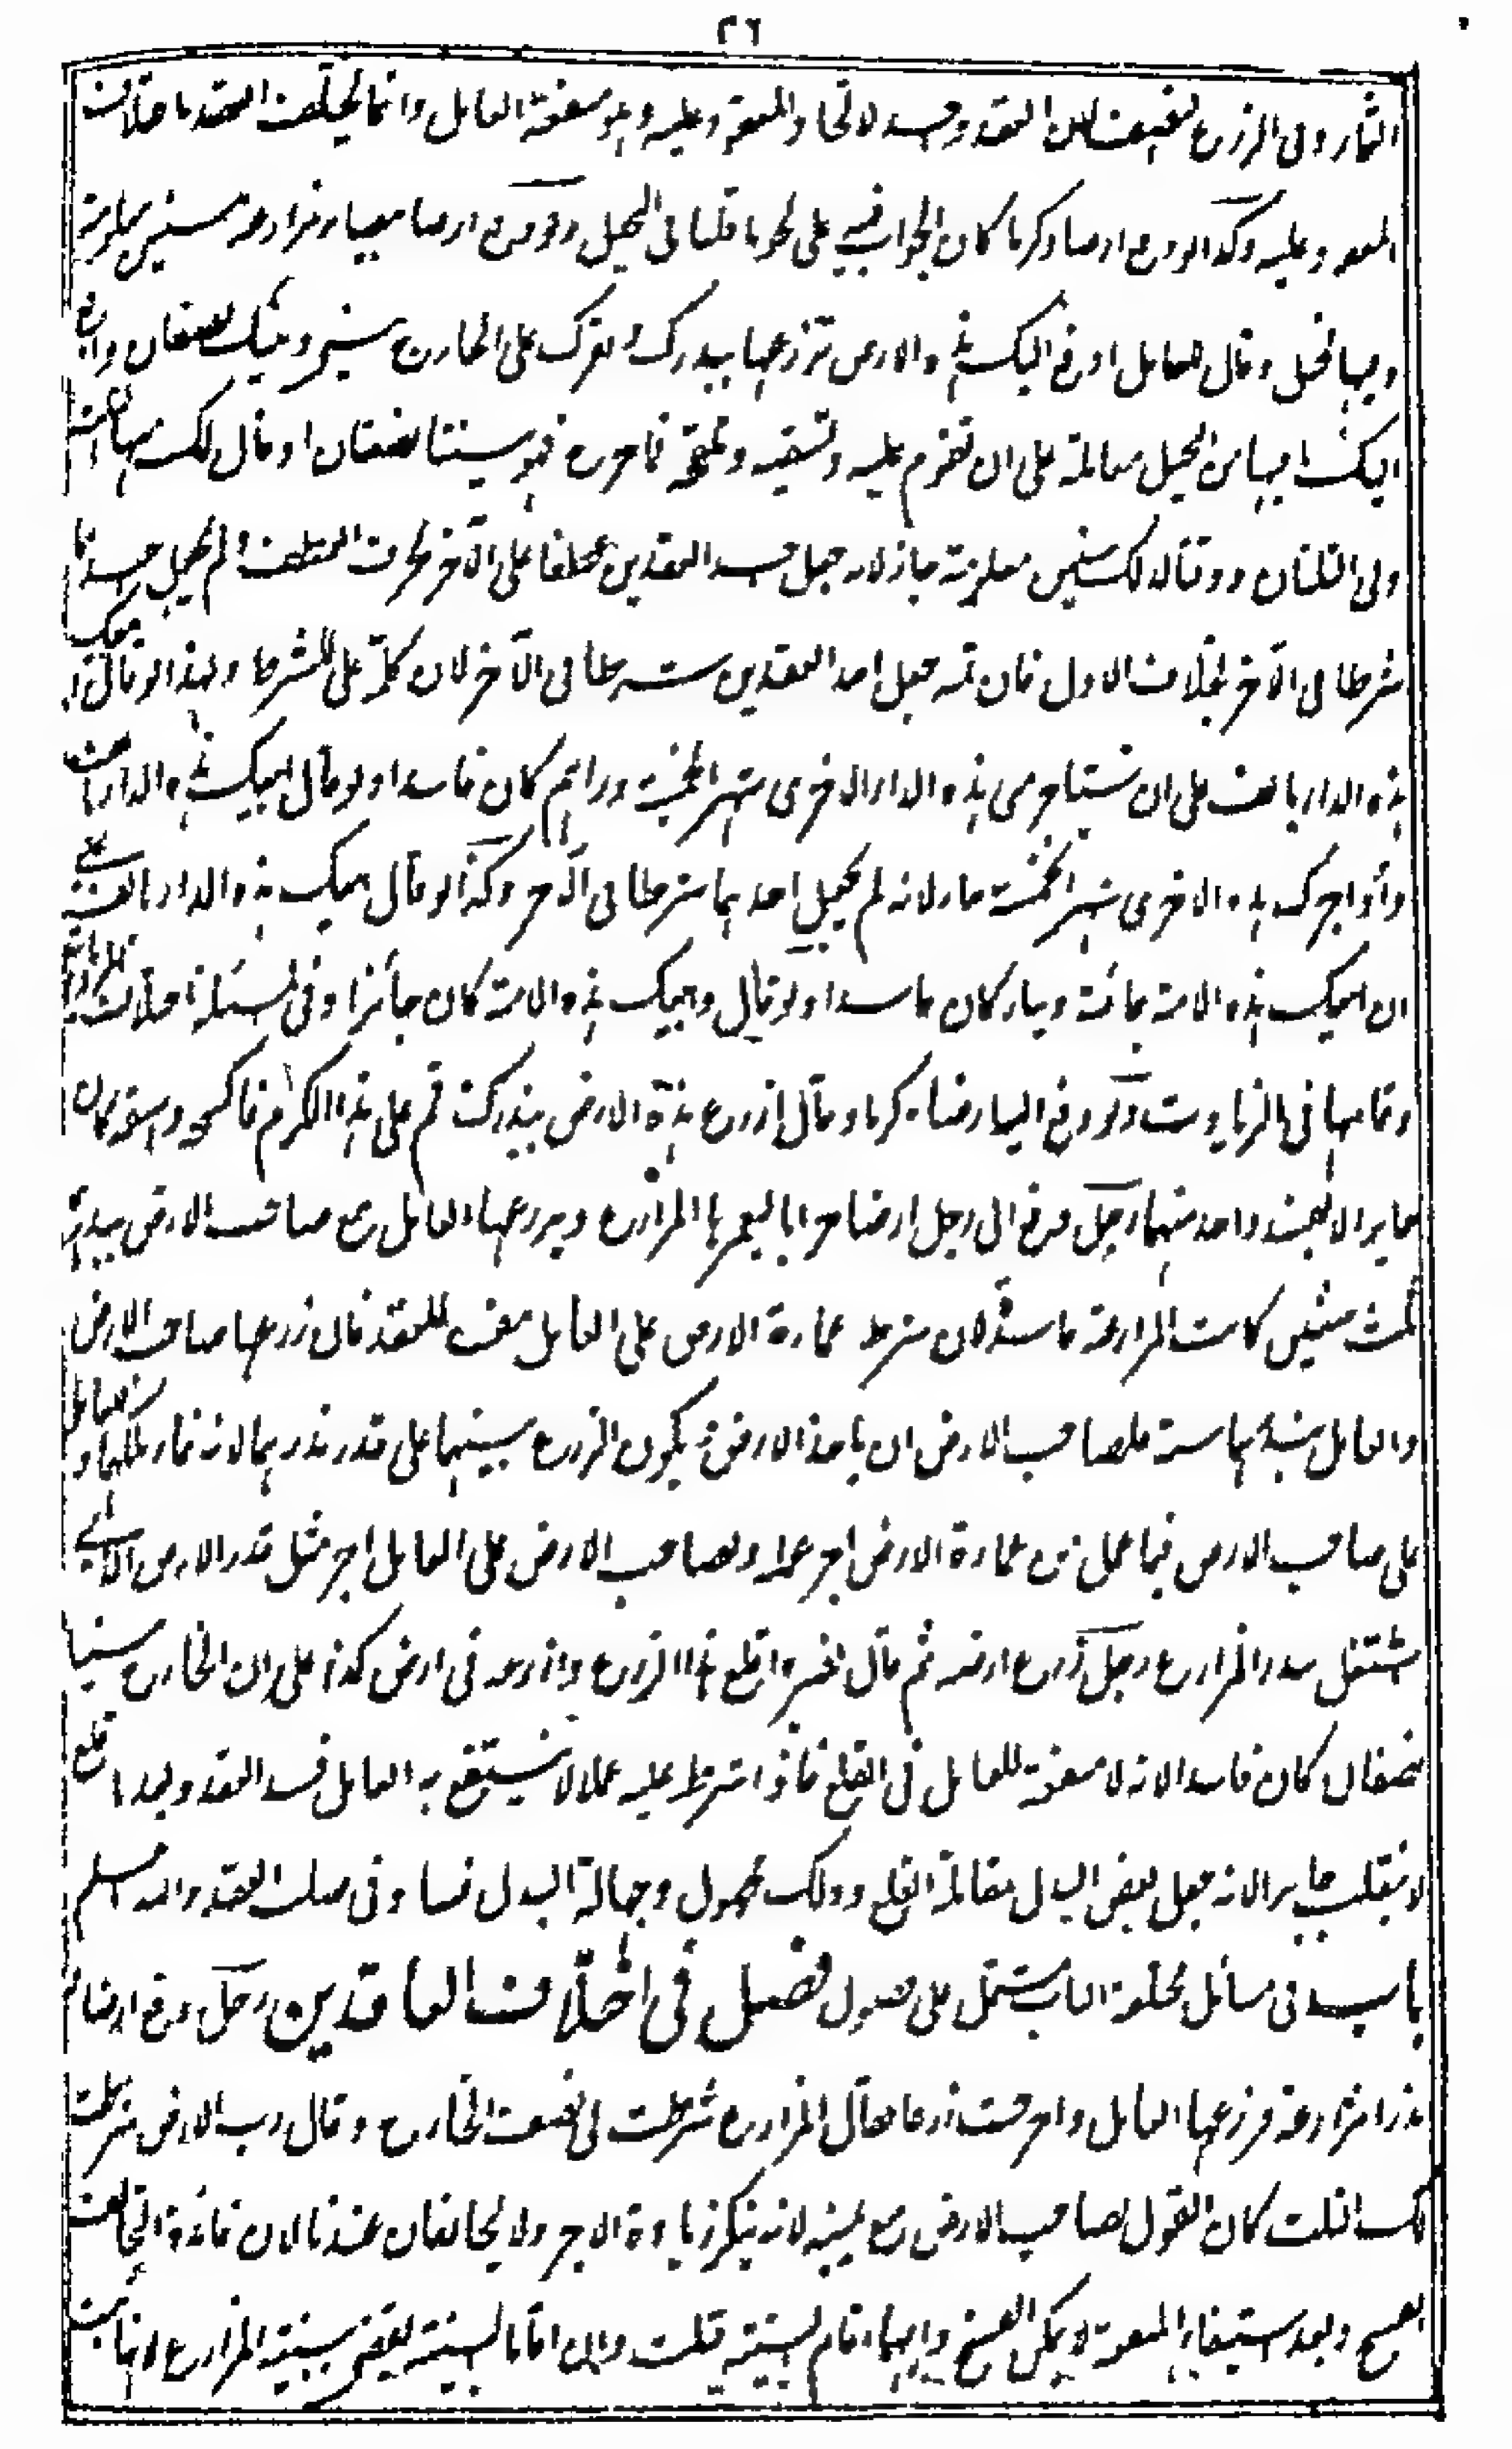 ٢٦
الثمار وفى الزرع لنصفين لان العقد واحد لاتحاد المعقود عليه وهو منفعة العامل وانما يختلف العقد باختلاف
المعقود عليه وكذا لو دفع ارضا وكرما كان الجواب فيه على نحو ما قلنا فى النخيل ولو دفع ارضا بيضاء مزارعة سنين معلومة
وفيها نخيل وقال للعامل ادفع اليك هذه الارض تزرعها ببذرك وبقرك على ان الخارج بينى وبينك نصفان وادفع
اليك ما فيها من النخيل معاملة على ان تقوم عليه وتسقيه وتلقحه فما خرج فهو بيننا نصفان او قال لك منها الثلث
ولى الثلثان ووقتا لذلك سنين معلومة جاز لانه جعل احد العقدين معطوفا على الآخر بحرف العطف ولم يجعل احدهما
شرطا فى الآخر بخلاف الاول فان ثمه جعل احد العقدين شرطا فى الآخر لان كلمة على للشرط ولهذا لو قال ابيعك
هذه الدار بالف على ان تستاجر منى هذه الدار الاخرى شهرا بخمسة دراهم كان فاسدا ولو قال ابيعك هذه الدار بالف
وأواجرك هذه الاخرى شهرا بخمسة جاز لانه لم يجعل احدهما شرطا فى الآخر وكذا لو قال ابيعك هذه الدار بالف على
ان ابيعك هذه الامة بمائة دينار كان فاسدا ولو قال وابيعك هذه الامة كان جائزا وفى المسئلة اختلاف
وتمامها فى الزيادات ولو دفع اليه ارضا وكرما وقال ازرع هذه الارض ببذرك وقم على هذا الكرم فاكسحه واسقه كان
جايزا لانه عطف واحد منهما رجل دفع الى رجل ارضا خرابا ليعمرها المزارع ويزرعها العامل مع صاحب الارض ببذرهما
ثلث سنين كانت المزارعة فاسدة لان شرط عمارة الارض على العامل مفسد للعقد فان زرعها صاحب الارض
والعامل ببذرهما سنة فلصاحب الارض ان ياخذ الارض ويكون الزرع بينهما على قدر بذرهما لانه نماء ملكهما وللعامل
على صاحب الارض فيما عمل من عمارة الارض اجر عمله ولصاحب الارض على العامل اجر مثل قدر الارض الذى
يشتغل ببذر المزارع رجل زرع ارضه ثم قال لغيره اقلع هذا الزرع وازرعه فى ارض كذا على ان الخارج بيننا
نصفان كان فاسدا لانه لا منفعة للعامل فى القلع فاذا شرط عليه عملا لا ينتفع به العامل فسد العقد وبعد ما قلع
لا ينقلب جايزا لانه جعل بعض البدل بمقابلة القلع وذلك مجهول وجهالة البدل فساد فى صلب العقد والله اعلم
باب فى مسائل مختلفة الباب يشتمل على فصول فصل فى اختلاف العاقدين رجل دفع ارضا و
بذرا مزارعة فزرعها العامل واخرجت زرعا فقال المزارع شرطت لى نصف الخارج وقال رب الارض شرطت
لك الثلث كان القول لصاحب الارض مع يمينه لانه ينكر زيادة الاجر ولا يتحالفان عندنا لان فائدة التحالف
الفسخ وبعد استيفاء المنفعة لا يمكن الفسخ وايهما اقام البينة قبلت وان اقاما البينة يقضى ببينة المزارع لانها تثبت